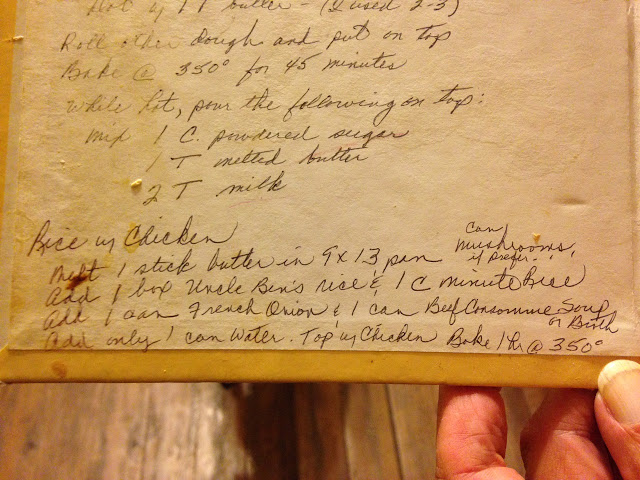 Dot w/ 1 T butter - (I used 2-3)
Roll other dough and put on top
Bake @ 350° for 45 minutes
While hot, pour the following on top:
Mix 1 C. powdered sugar
1 T melted butter
2 T milk
Rice w/ Chicken
Melt 1 stick butter in 9x13 pan
Can Mushrooms,
if prefer..
Add 1 box Uncle Ben's rice & 1 C minute Rice
Add 1 can French Onion & 1 can Beef Consomme Soup
or Broth
Add only 1 can water. Top w/ Chicken Bake 1 hr @ 350°